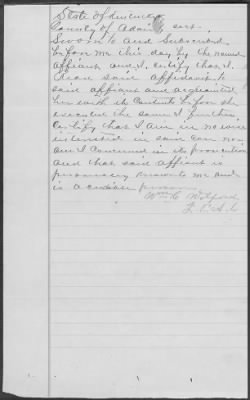 State of Kentucky
County of Adair Sct.
Sworn to and Subscribed
before me this day by the named
affiant and I certify that I
Read said affidavit to
said affiant and acquainted
her with its Contents before she
executed the same I further
Certify that I am in no wise
interested in said case nor
am I Concerned in its prosecution
and that said affiant is
personally known to me and
is a credible person
Wm